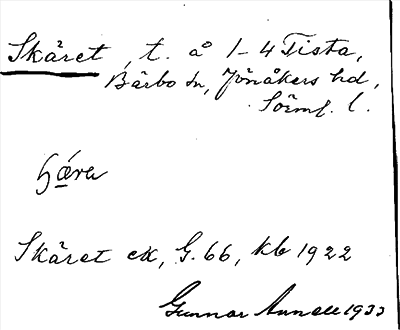 Skäret, t. å 1-4 Tista,
Bärbo sn, Jönåkers hd,
Sörml. l.
Skäret ek, G. 66, kb 1922
Gunnar Annell 1933